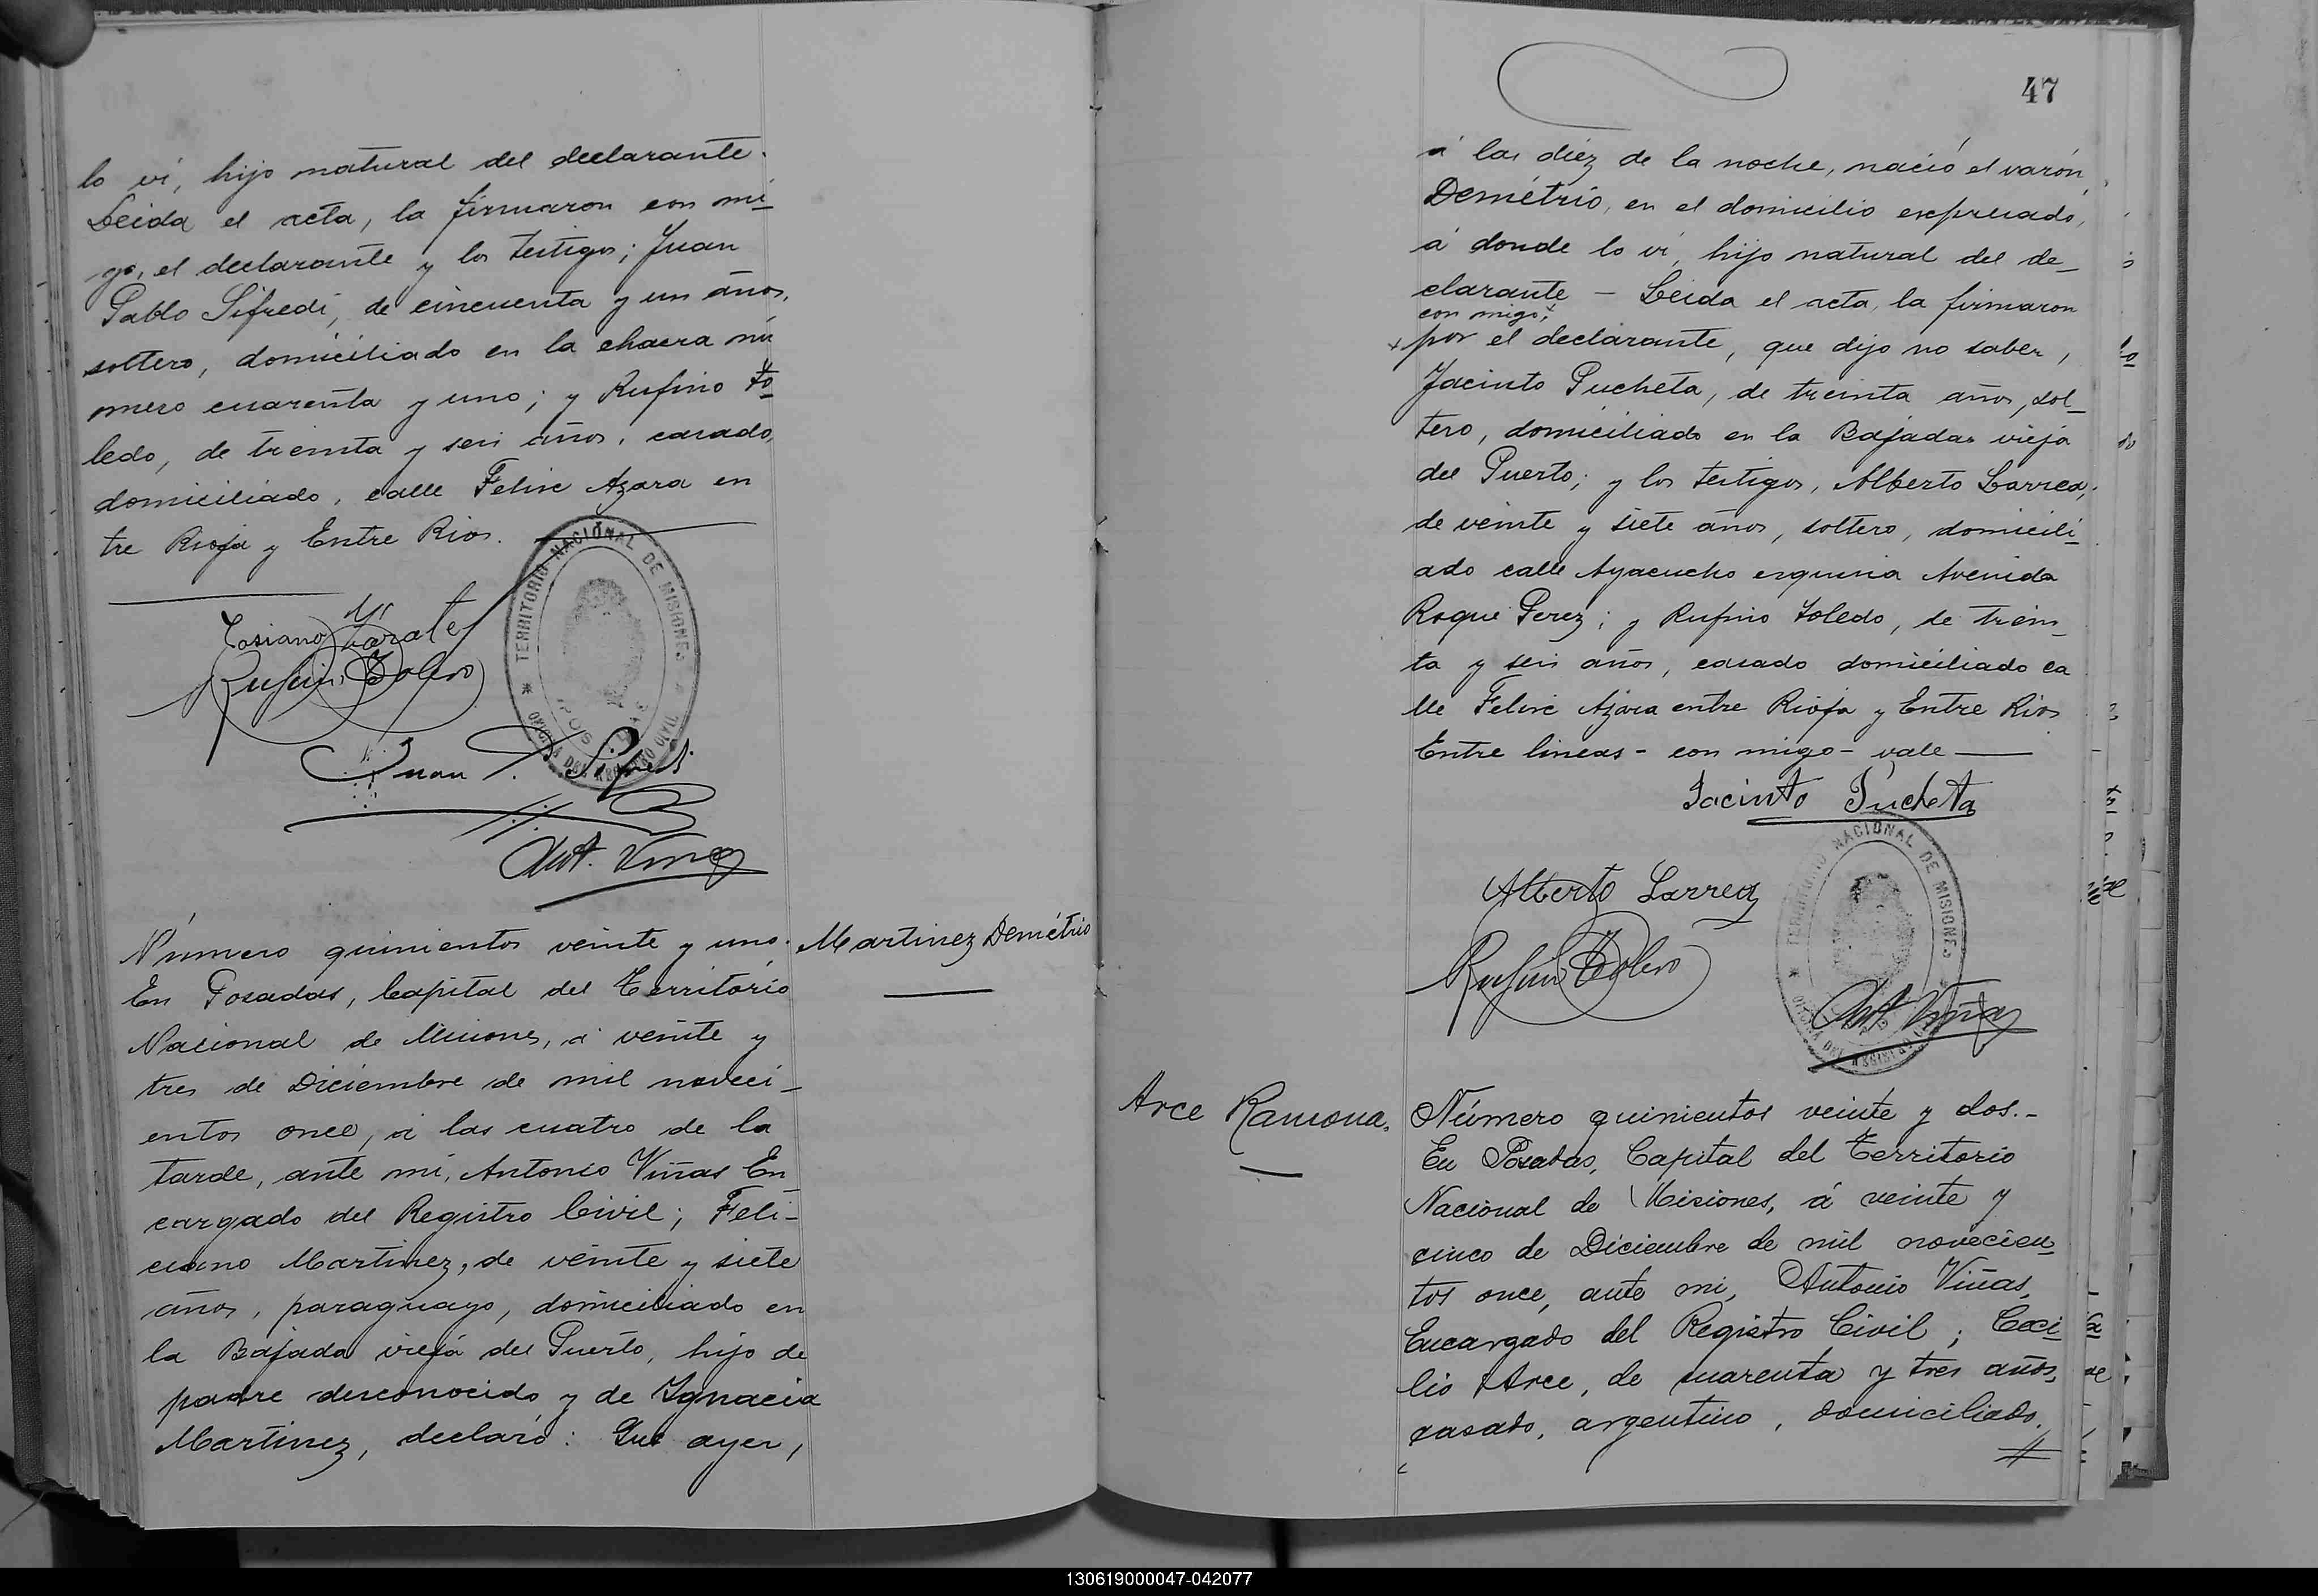 lo ví, hijo natural del declarante.
Leida el acta, la firmaron con mi
go, el declarante y los testigos; Juan
Pablo Sifredi, de cincuenta y un años,
soltero, domiciliado en la chacra nú
mero cuarenta y uno; y Rufino To
ledo, de treinta y seis años, casado,
domiciliado, calle Felix Azara en
tre Rioja y Entre Rios.
TERRITORIO NACIONAL DE MISIONES
OFICINA DEL REGISTRO CIVIL
POSADAS
Casiano Zarate
Rufino Toledo
Juan P. Sifredi
Ant. Viñas
Número quinientos veinte y uno.
Martinez Demétrio
En Posadas, Capital del Territorio
Nacional de Misiones, á veinte y
tres de Diciembre de mil noveci-
entos once, á las cuatro de la
tarde, ante mi, Antonio Viñas En
cargado del Registro Civil; Feli-
ciano Martinez, de veinte y siete
años, paraguayo, domiciliado en
la Bajada vieja del Puerto, hijo de
padre desconocido y de Ignacia
Martinez, declaró: Que ayer,
47
á las diez de la noche, nació el varón
Demétrio, en el domicilio expresado,
á donde lo ví, hijo natural del de-
clarante - Leida el acta, la firmaron
con migo,
por el declarante, que dijo no saber,
Jacinto Pucheta, de treinta años, sol-
tero, domiciliado en la Bajadas vieja
del Puerto; y los testigos, Alberto Larrea,
de veinte y siete años, soltero, domicili
ado calle Ayacucho esquina Avenida
Roque Perez; y Rufino Toledo, de trein-
ta y seis años, casado domiciliado ca
lle Felix Azara entre Rioja y Entre Rios
Entre lineas - con migo - vale
Jacinto Pucheta
TERRITORIO NACIONAL DE MISIONES
OFICINA DEL REGISTRO CIVIL
Alberto Larrea
Rufino Toledo
Ant. Viñas
Arce Ramona.
Número quinientos veinte y dos.-
En Posadas, Capital del Territorio
Nacional de Misiones, á veinte y
cinco de Diciembre de mil novecien
tos once, ante mi, Antonio Viñas,
Encargado del Registro Civil; Ceci
lio Arce, de cuarenta y tres años,
casado, argentino, domiciliado.
130619000047-042077